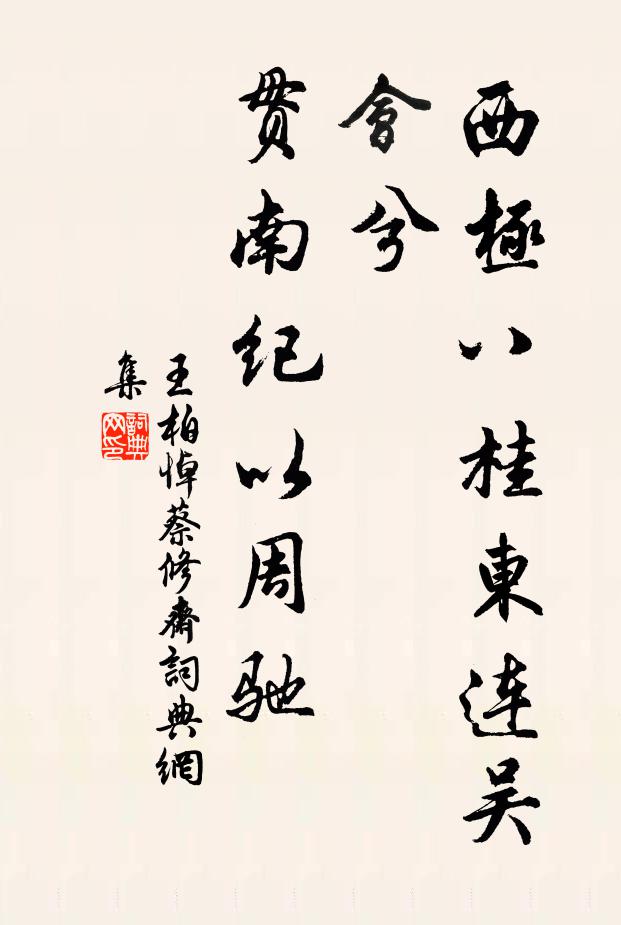 西極八桂東連吴
會兮
贯南紀以周馳
王柏悼蔡修齋詞典網
集
詞典
网印